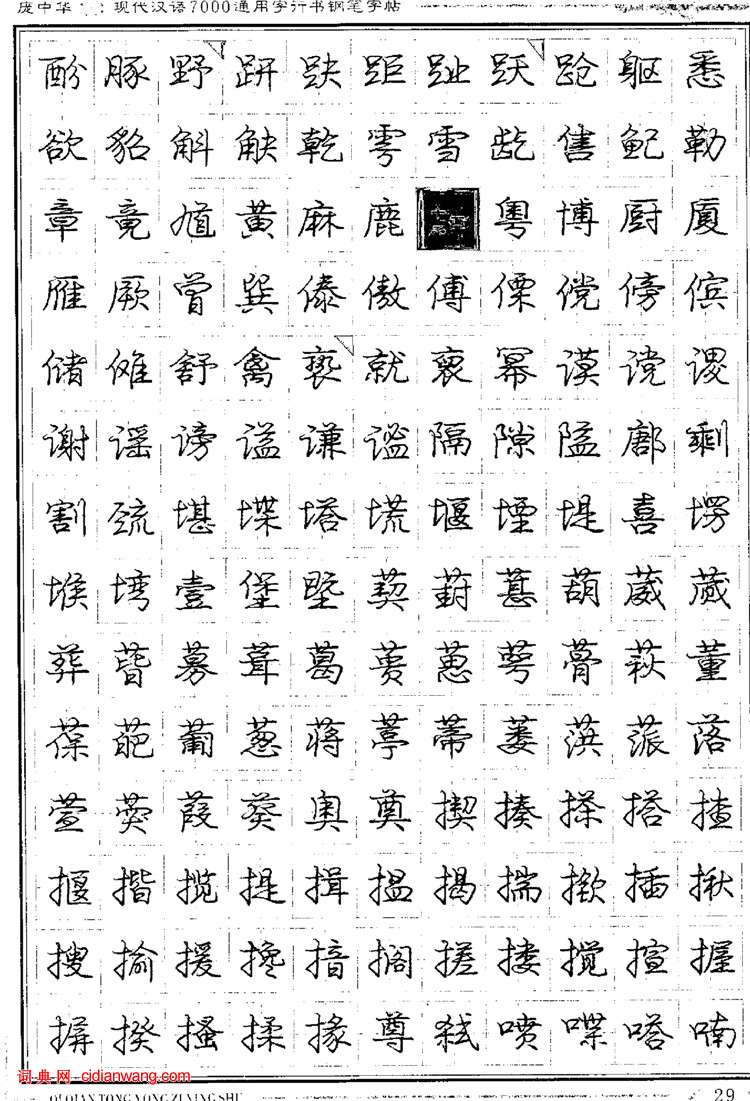 庞中华 : 现代汉语7000通用字行书钢笔字帖
酚豚野趼趹距趾跃跄躯悉
欲貂斛觖乾雩雪龁售鱾勒
章竟馗黄麻鹿粤博厨厦
雁厥曾巽傣傲傅傈傥傍傧
储傩舒禽亵就裒幂谟谠谡
谢谣谤谥谦谧隔隙隘鄌剩
割巯堪堞塔塃堰堙堤喜塄
堠塆壹堡塈葜葑葚葫葳蒇
葬蒈募葺葛蒉葸萼蓇萩董
葆葩葡葱蒋葶蒂蒌蕻蒎落
萱葖葭葵奥奠揳揍搽搭揸
揠揩揽提揖揾揭揣揿插揪
搜揄援搀揞搁搓搂搅揎握
摒揆搔揉掾尊弑喷喋嗒喃
词典网 · cidianwang.com
QIQIAN TONG YONG ZI XING SHU
29